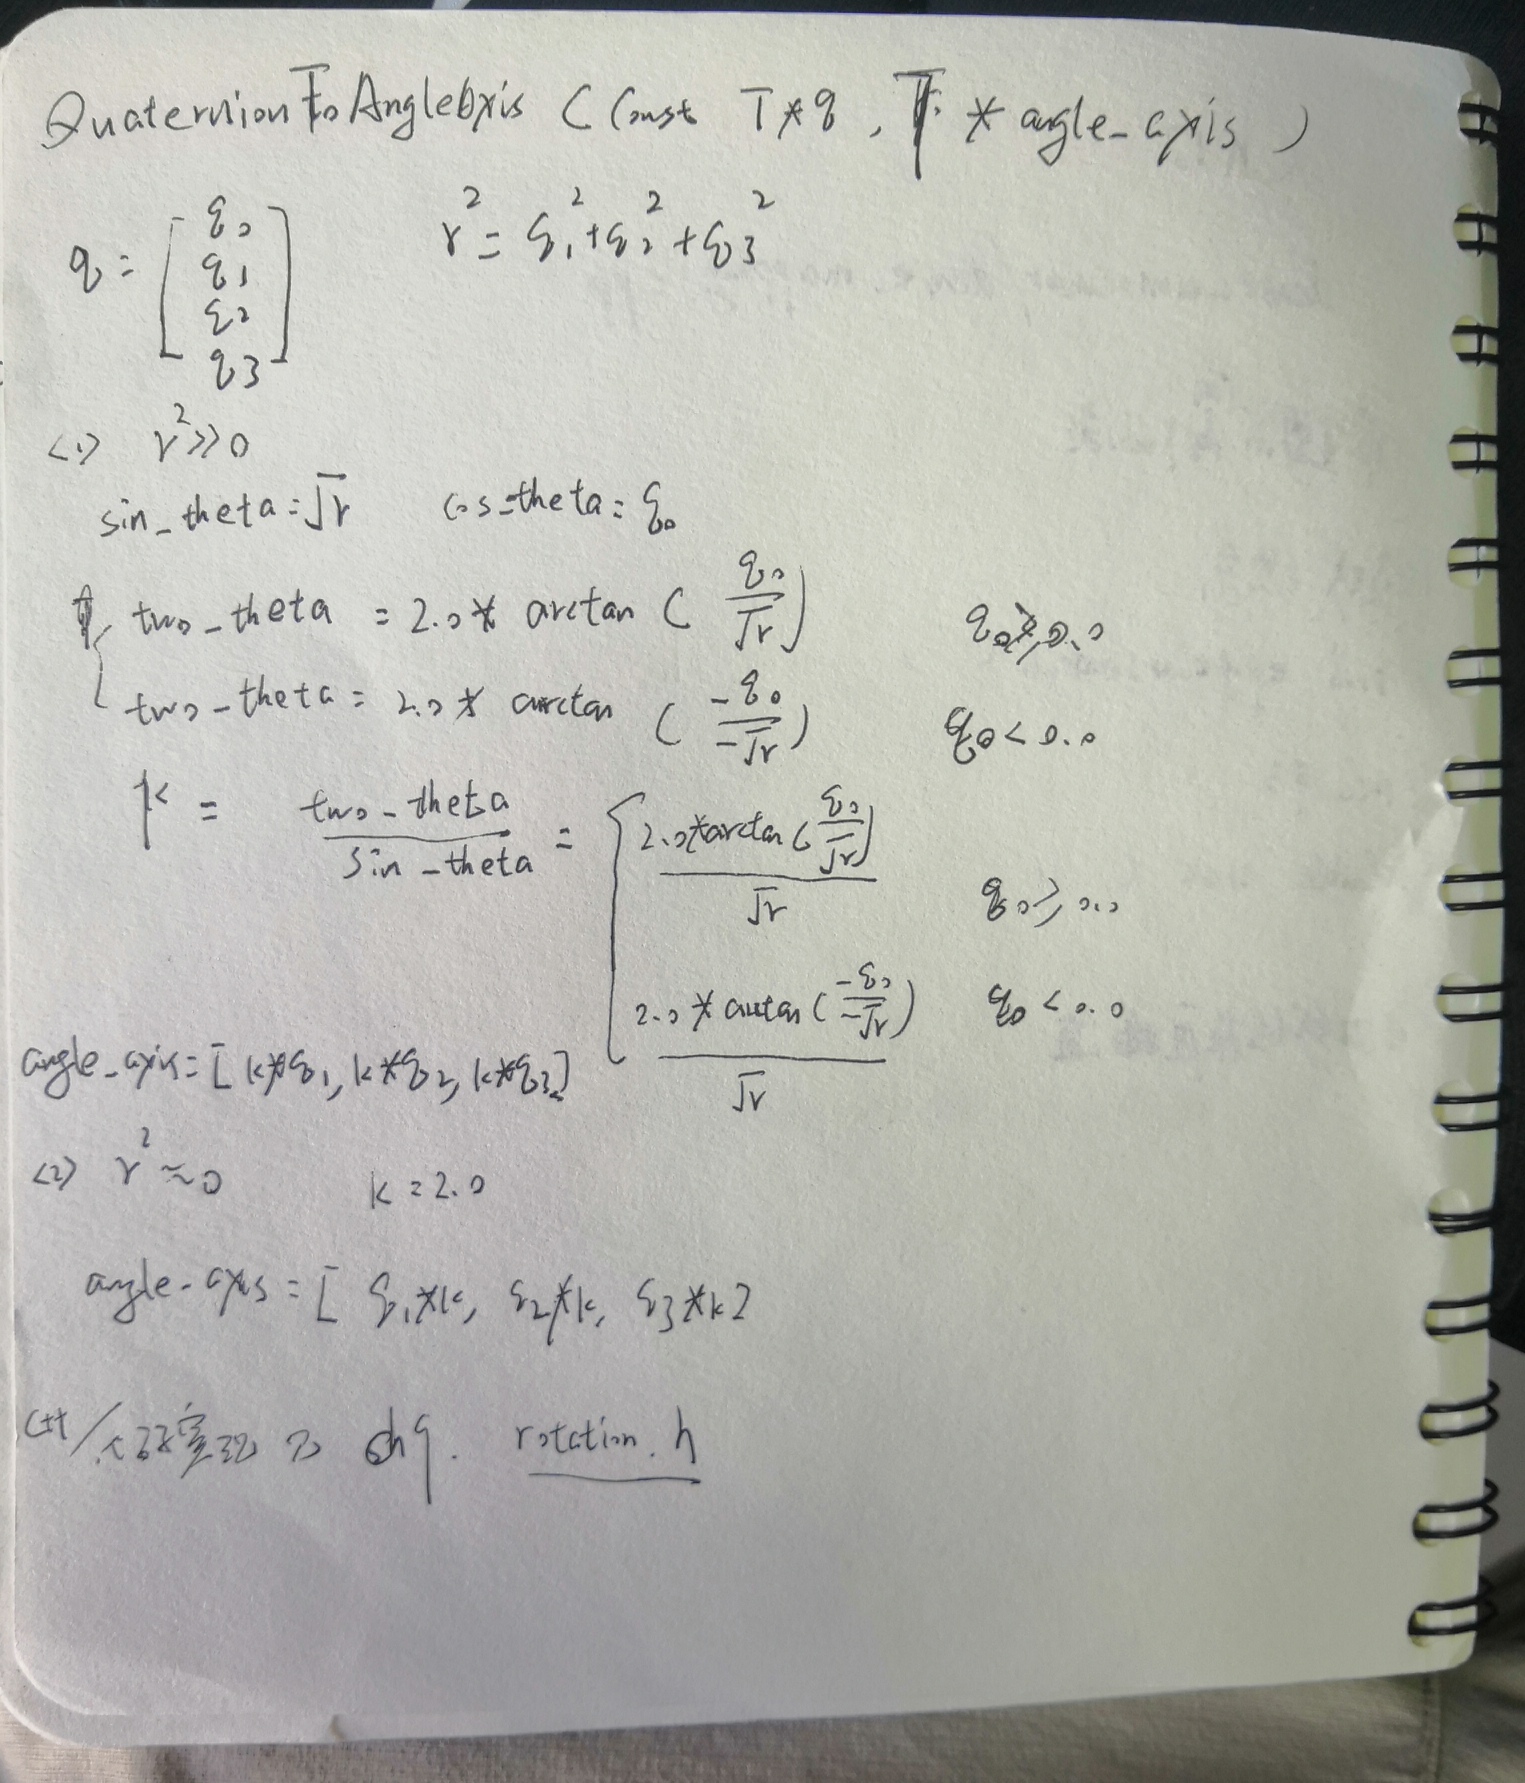 QuaternionToAngleAxis ( Const T*q , T * angle_axis )
q = [ q0 q1 q2 q3 ]   r² = q1² + q2² + q3²
<1> r² >> 0
sin_theta = √r   cos_theta = q0
two_theta = 2.0* arctan ( q0 / √r )   q0 ≥ 0.0
two_theta = 2.0* arctan ( -q0 / -√r )   q0 < 0.0
k = two_theta / sin_theta = { 2.0*arctan ( q0 / √r ) / √r   q0 ≥ 0.0
2.0* arctan ( -q0 / -√r ) / √r   q0 < 0.0
angle_axis = [ k*q1, k*q2, k*q3 ]
<2> r² ≈ 0   k = 2.0
angle_axis = [ q1*k, q2*k, q3*k ]
C++ / rotation.h